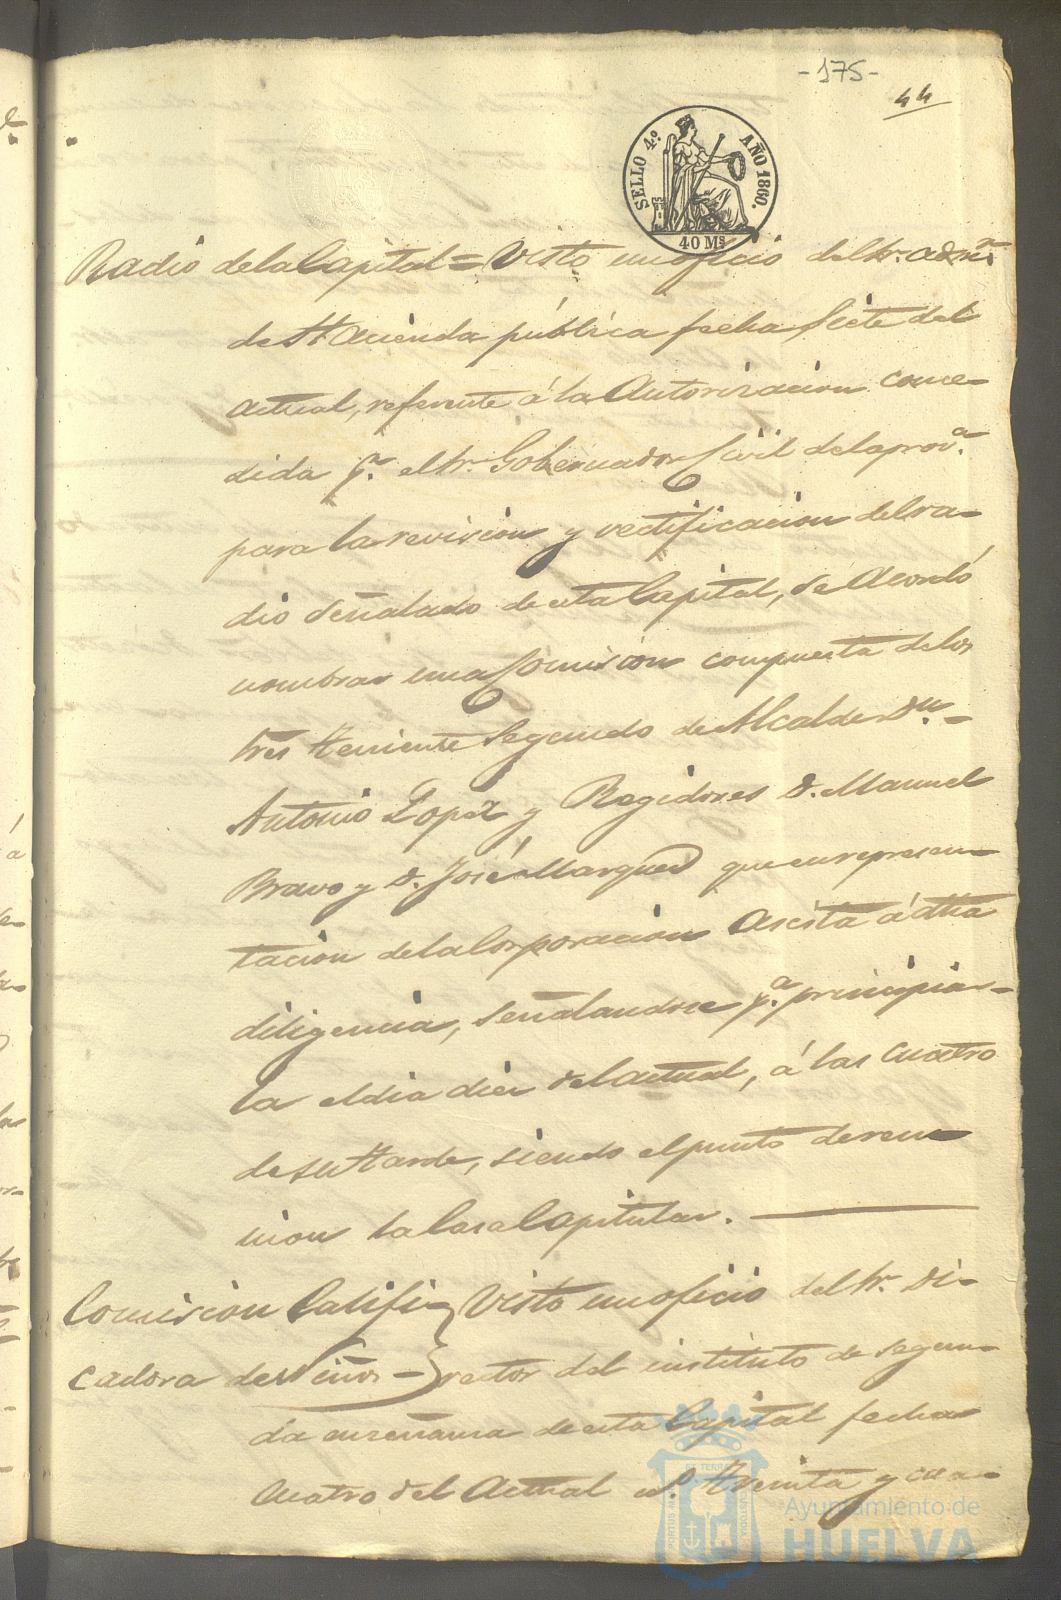 -175-
44
SELLO 4.º AÑO 1860.
40 Ms
Radio de la Capital = Visto un oficio del Sr. admr.
de Hacienda pública fecha siete del
actual, referente á la Autorizacion conce-
dida pr. el Sr. Gobernador Civil de la prova.
para la revision y rectificacion del ra-
dio señalado de esta Capital, se Acordó
nombrar una Comision compuesta de los
tres teniente Segundo de Alcalde Dn.
Antonio Lopez y Regidores D. Manuel
Bravo y D. José Marques que en represen-
tacion de la Corporacion Asista á dha
diligencia, señalandose pa. principiar-
la el dia diez del actual, á las cuatro
de su tarde, siendo el punto de reu-
nion la Casa Capitular.
Comision Califi- Visto un oficio del Sr. Di-
cadora de Niños - rector del instituto de segun-
da enseñanza de esta Capital fecha
cuatro del Actual no. treinta y cua-
PORTUS MARIS ET TERRAE CUSTODIA
Ayuntamiento de
HUELVA